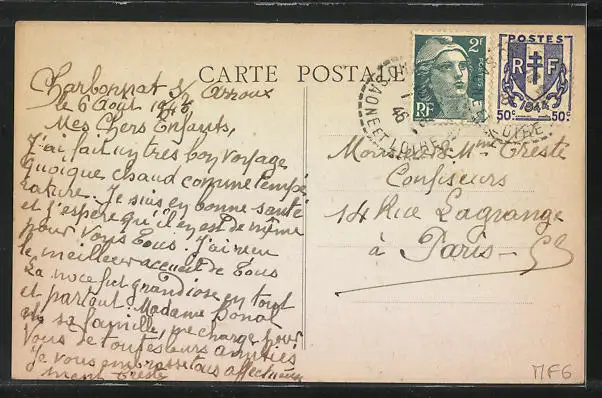 CARTE POSTALE
Charbonnat s/ Arroux
le 6 Août 1946
Mes Chers Enfants,
J'ai fait un tres bon voyage
quoique chaud comme tempé
rature. Je suis en bonne santé
et j'espère qu'il en est de même
pour Vous Tous. J'ai reçu
le meilleur accueil de Tous
La noce fut grandiose en tout
et partout. Madame Bonal
et sa famille, me charge pour
Vous de toutes leurs amitiés
Je vous embrasse tous affectueuse
2f
POSTES
RF
POSTES
RF
1944
50c 50c
SAONE ET LOIRE
46
Monsieur & Mme Creste
Confiseurs
14 Rue Lagrange
à Paris
MF6